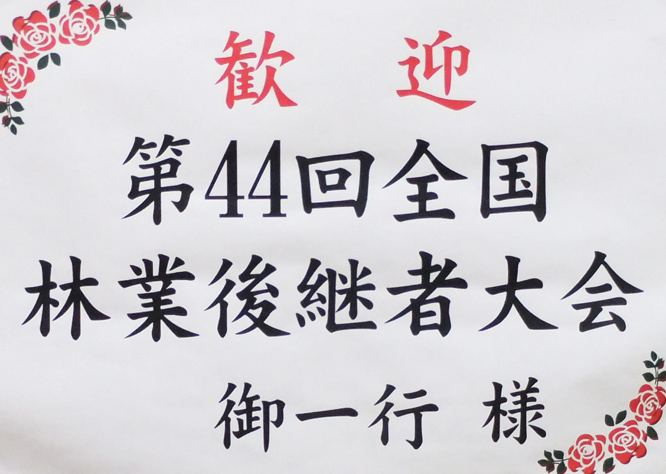 歓迎
第44回全国
林業後継者大会
御一行 様